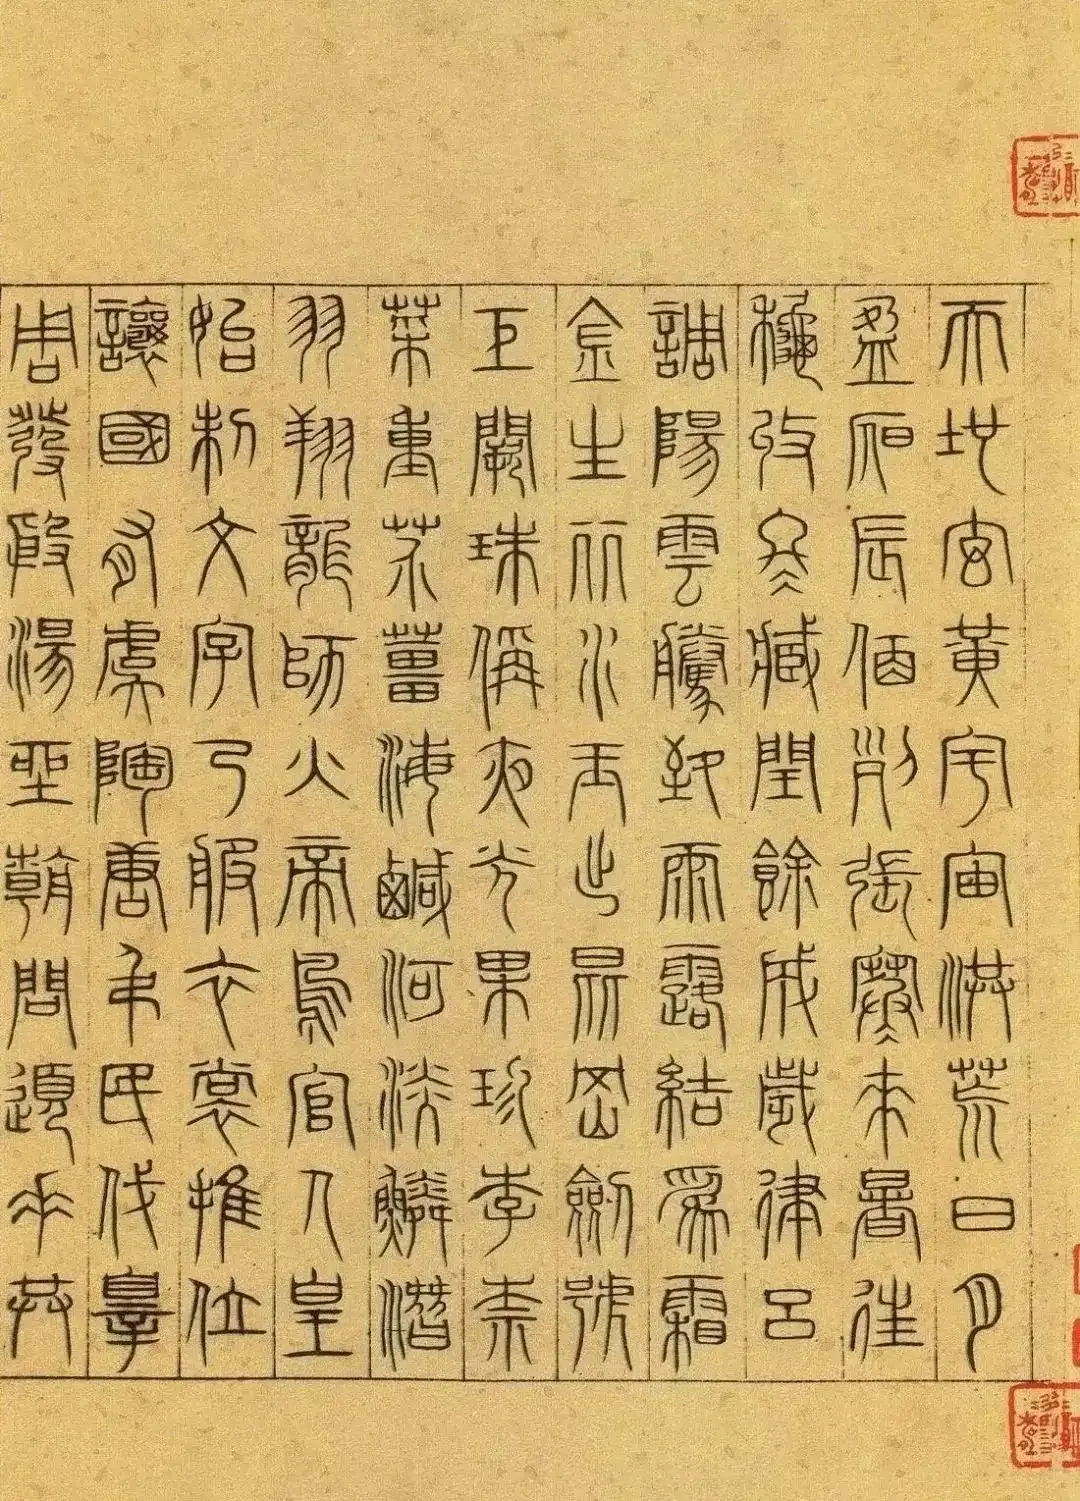 天地玄黃宇宙洪荒日月
盈昃辰宿列張寒來暑往
秋收冬藏閏餘成歲律呂
調陽雲騰致雨露結爲霜
金生丽水玉出昆岡劍號
巨闕珠稱夜光果珍李柰
菜重芥薑海鹹河淡鱗潛
羽翔龍師火帝鳥官人皇
始制文字乃服衣裳推位
讓國有虞陶唐弔民伐辠
周發殷湯坐朝問道垂拱